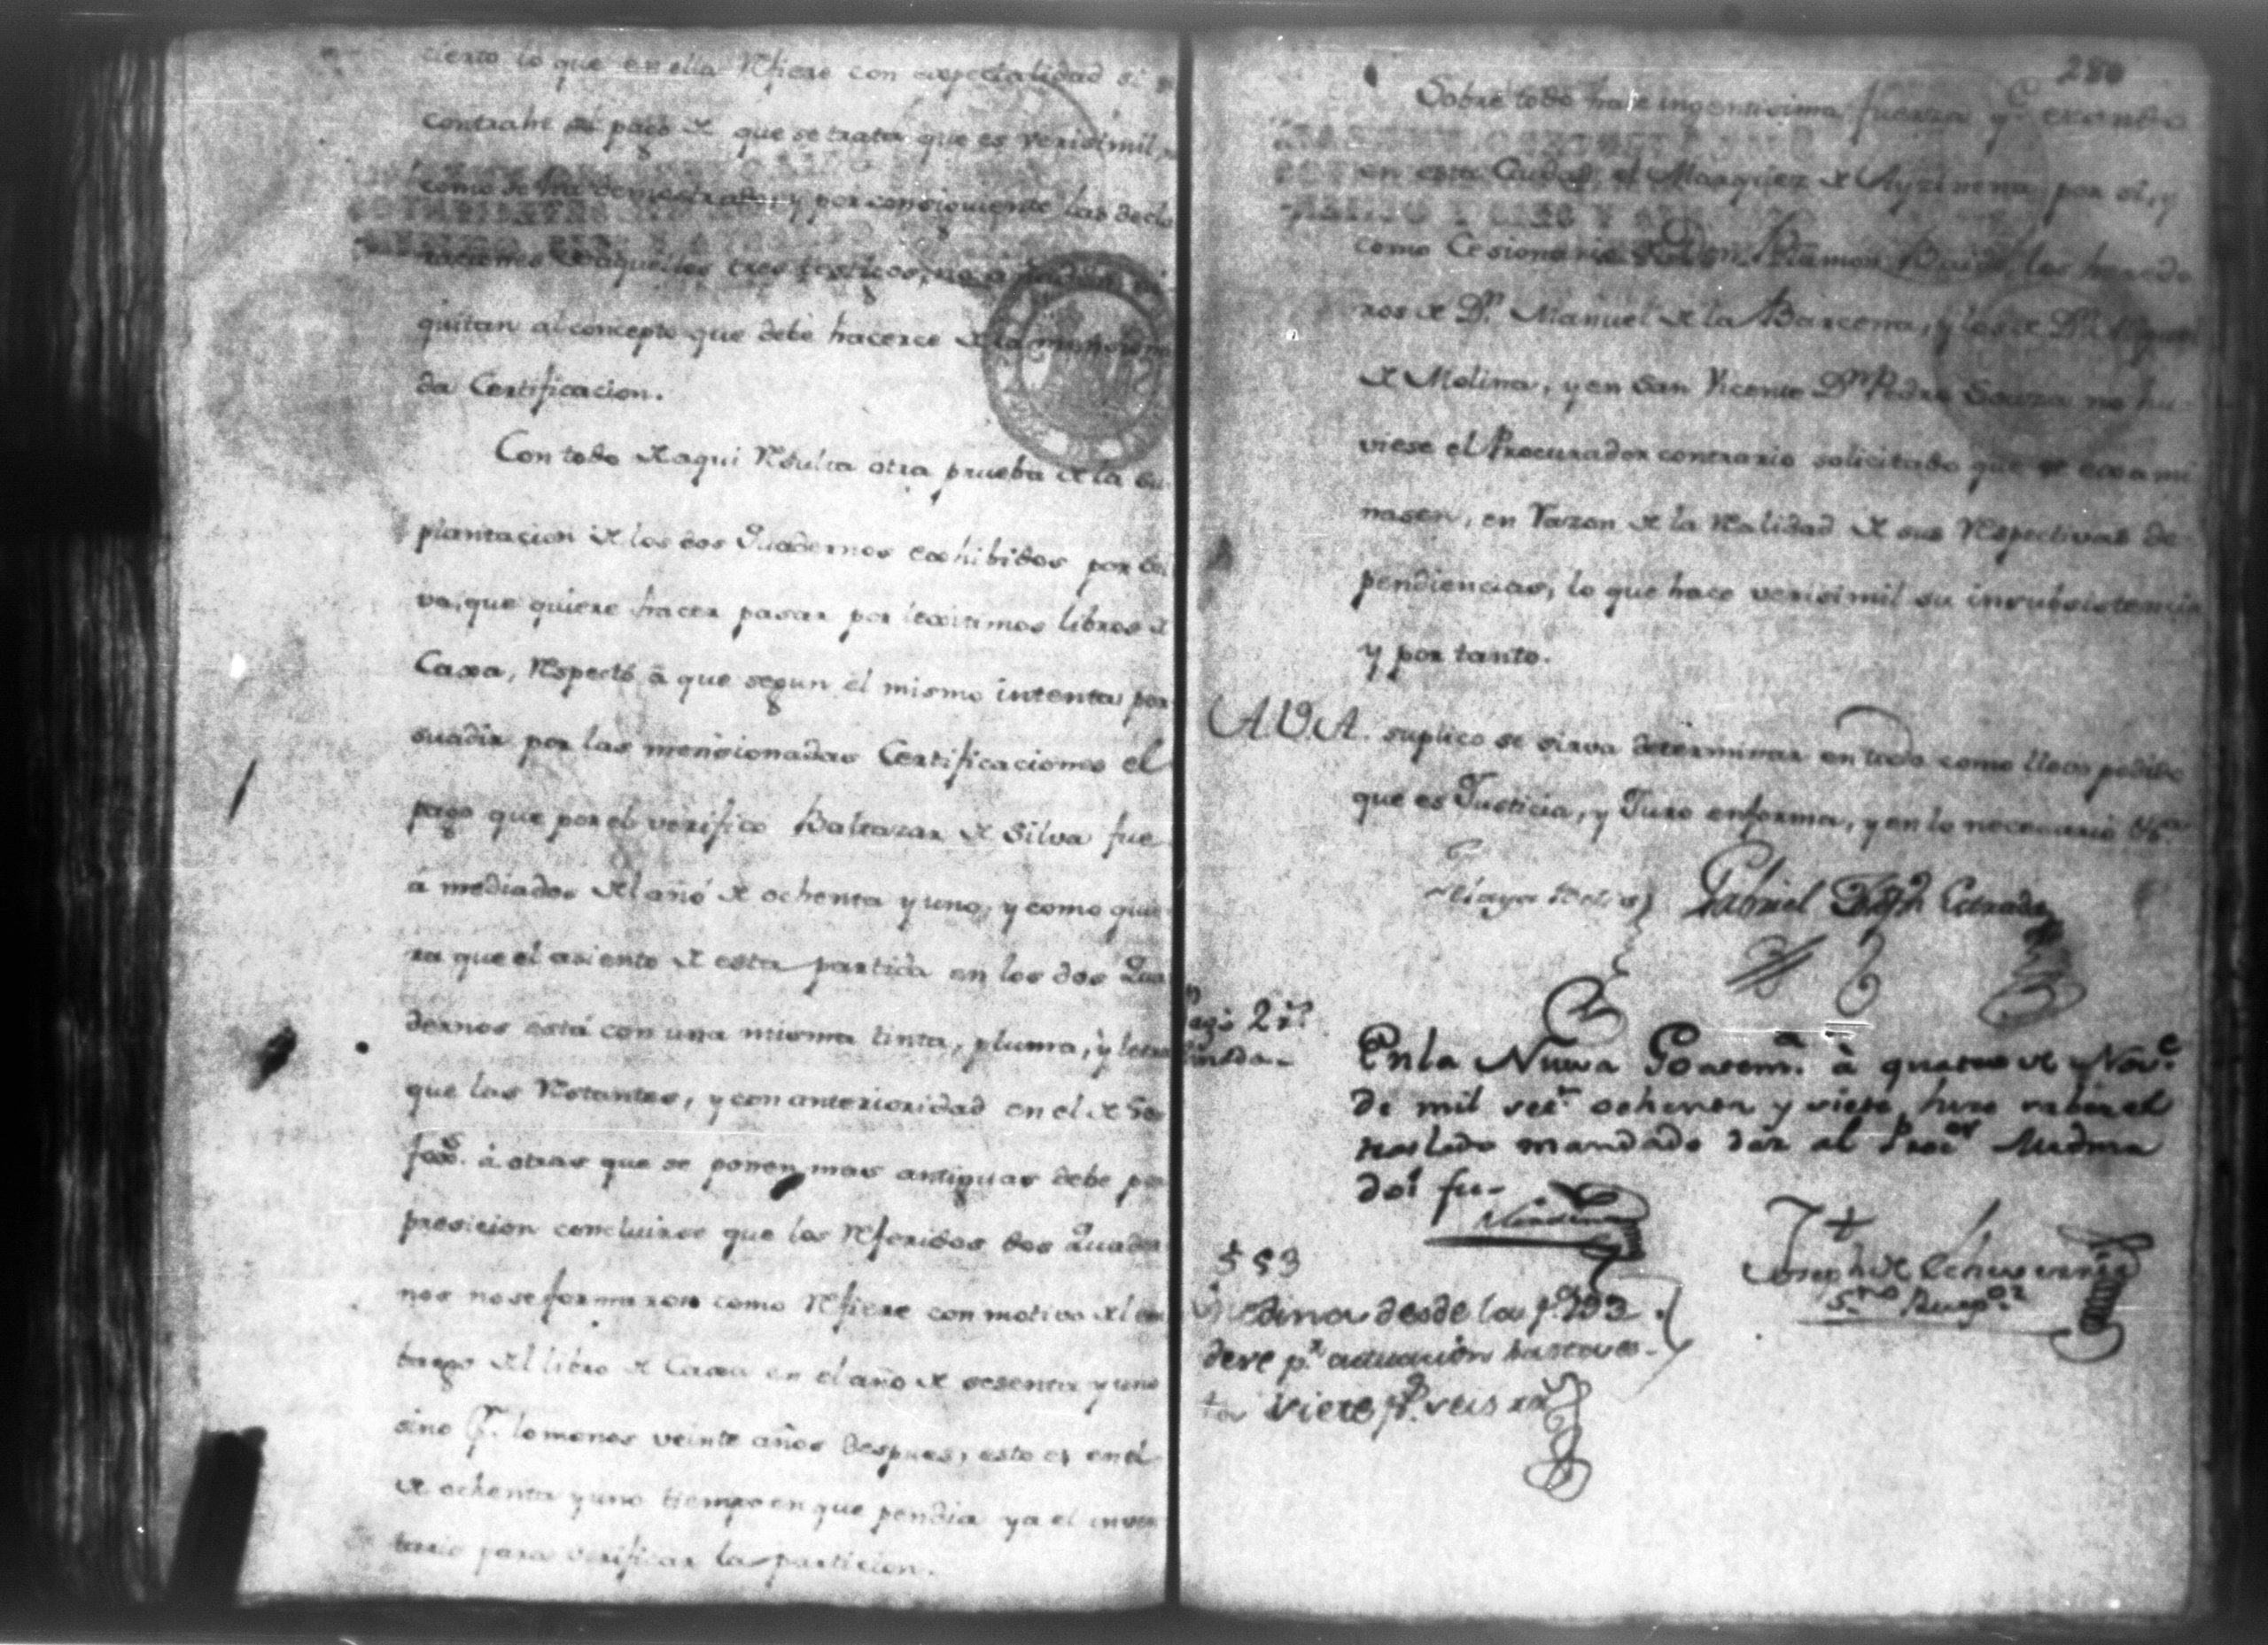 cierto lo que en ella Refiere con especialidad si se
contrahe al pago de que se trata que es verisimil,
como se ha demostrado, y por consiguiente las decla
raciones de aquellos tres testigos, no
quitan al concepto que debe hacerce de la menciona
da Certificacion.
Con todo de aqui Resulta otra prueba de la su
plantacion de los dos Quadernos exhibidos por Sil
va, que quiere hacer pasar por lexitimos libros de
Caxa, Respecto à que segun el mismo intenta per
suadir por las mensionadas Certificaciones el
pago que por el verifico Baltazar de Silva fue
à mediados del año de ochenta y uno, y como quie
ra que el asiento de esta partida en los dos Qua
dernos está con una misma tinta, pluma, y letra
que las Restantes, y con anterioridad en el de
foxs. à otras que se ponen mas antiguas debe por
presicion concluirse que los Referidos dos Quader
nos no se formaron como Refiere con motivo del em
bargo del libro de Caxa en el año de sesenta y uno
sino P. lo menos veinte años despues, esto es en el
de ochenta y uno tiempo en que pendia ya el inven
tario para verificar la particion.
280
Sobre todo hace ingentisima fuerza q.e estando
en esta Ciudad el Marquez de Ayzinena por si, y
como Cesionario de Don Ramon, los herede
ros de D.n Manuel de la Barcena, y los de D.n Miguel
de Molina, y en San Vicente D.n Pedro Souza no hu
viese el Procurador contrario solicitado que se exami
nasen, en razon de la Realidad de sus Respectivas de
pendiencias, lo que hace verisimil su insubsistencia
y por tanto.
A.V.A. suplico se sirva determinar en todo como llevo pedido
que es Justicia, y Juro en forma, y en lo necesario
Gabriel Estrada
2 r.s
En la Nueva Goatem.a à quatro de Nov.e
de mil set.s ochenta y siete hize saber el
traslado mandado dar al Proc.or Medina
doi fu-
Medina
Joseph de Echeverria
S.no Recep.or
553
Medina desde la f. 193
deve p.r actuacion
ta y siete p.s seis rr.s